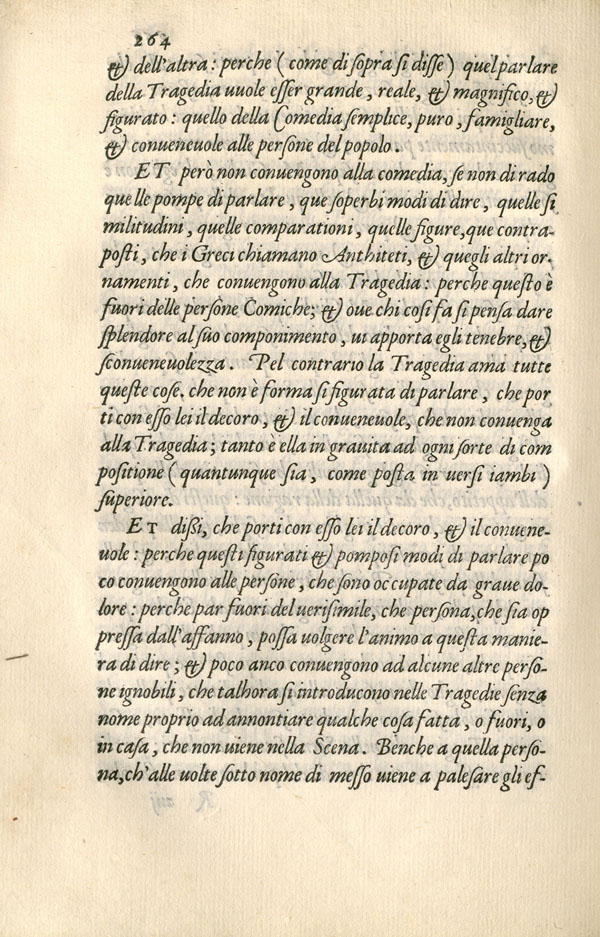 264
&) dell'altra: perche (come di sopra si disse) quel parlare
della Tragedia uuole esser grande, reale, &) magnifico, &)
figurato: quello della Comedia semplice, puro, famigliare,
&) conueneuole alle persone del popolo.
ET però non conuengono alla comedia, se non di rado
quelle pompe di parlare, que soperbi modi di dire, quelle si
militudini, quelle comparationi, quelle figure, que contra-
posti, che i Greci chiamano Anthiteti, &) quegli altri or-
namenti, che conuengono alla Tragedia: perche questo è
fuori delle persone Comiche; &) oue chi cosi fa si pensa dare
splendore al suo componimento, ui apporta egli tenebre, &)
sconueneuolezza. Pel contrario la Tragedia ama tutte
queste cose. che non è forma si figurata di parlare, che por
ti con esso lei il decoro, &) il conueneuole, che non conuenga
alla Tragedia; tanto è ella in grauita ad ogni sorte di com
positione (quantunque sia, come posta in uersi iambi)
superiore.
ET dißi, che porti con esso lei il decoro, &) il conuene-
uole: perche questi figurati &) pomposi modi di parlare po
co conuengono alle persone, che sono occupate da graue do-
lore: perche par fuori del uerisimile, che persona, che sia op
pressa dall'affanno, possa uolgere l'animo a questa manie-
ra di dire; &) poco anco conuengono ad alcune altre perso-
ne ignobili, che talhora si introducono nelle Tragedie senza
nome proprio ad annontiare qualche cosa fatta, o fuori, o
in casa, che non uiene nella Scena. Benche a quella perso-
na, ch'alle uolte sotto nome di messo uiene a palesare gli ef-